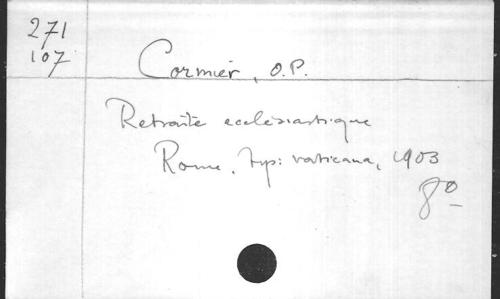 271
107
Cormier, O.P.
Retraite ecclésiastique
Rome, typ: vaticana, 1903
8º